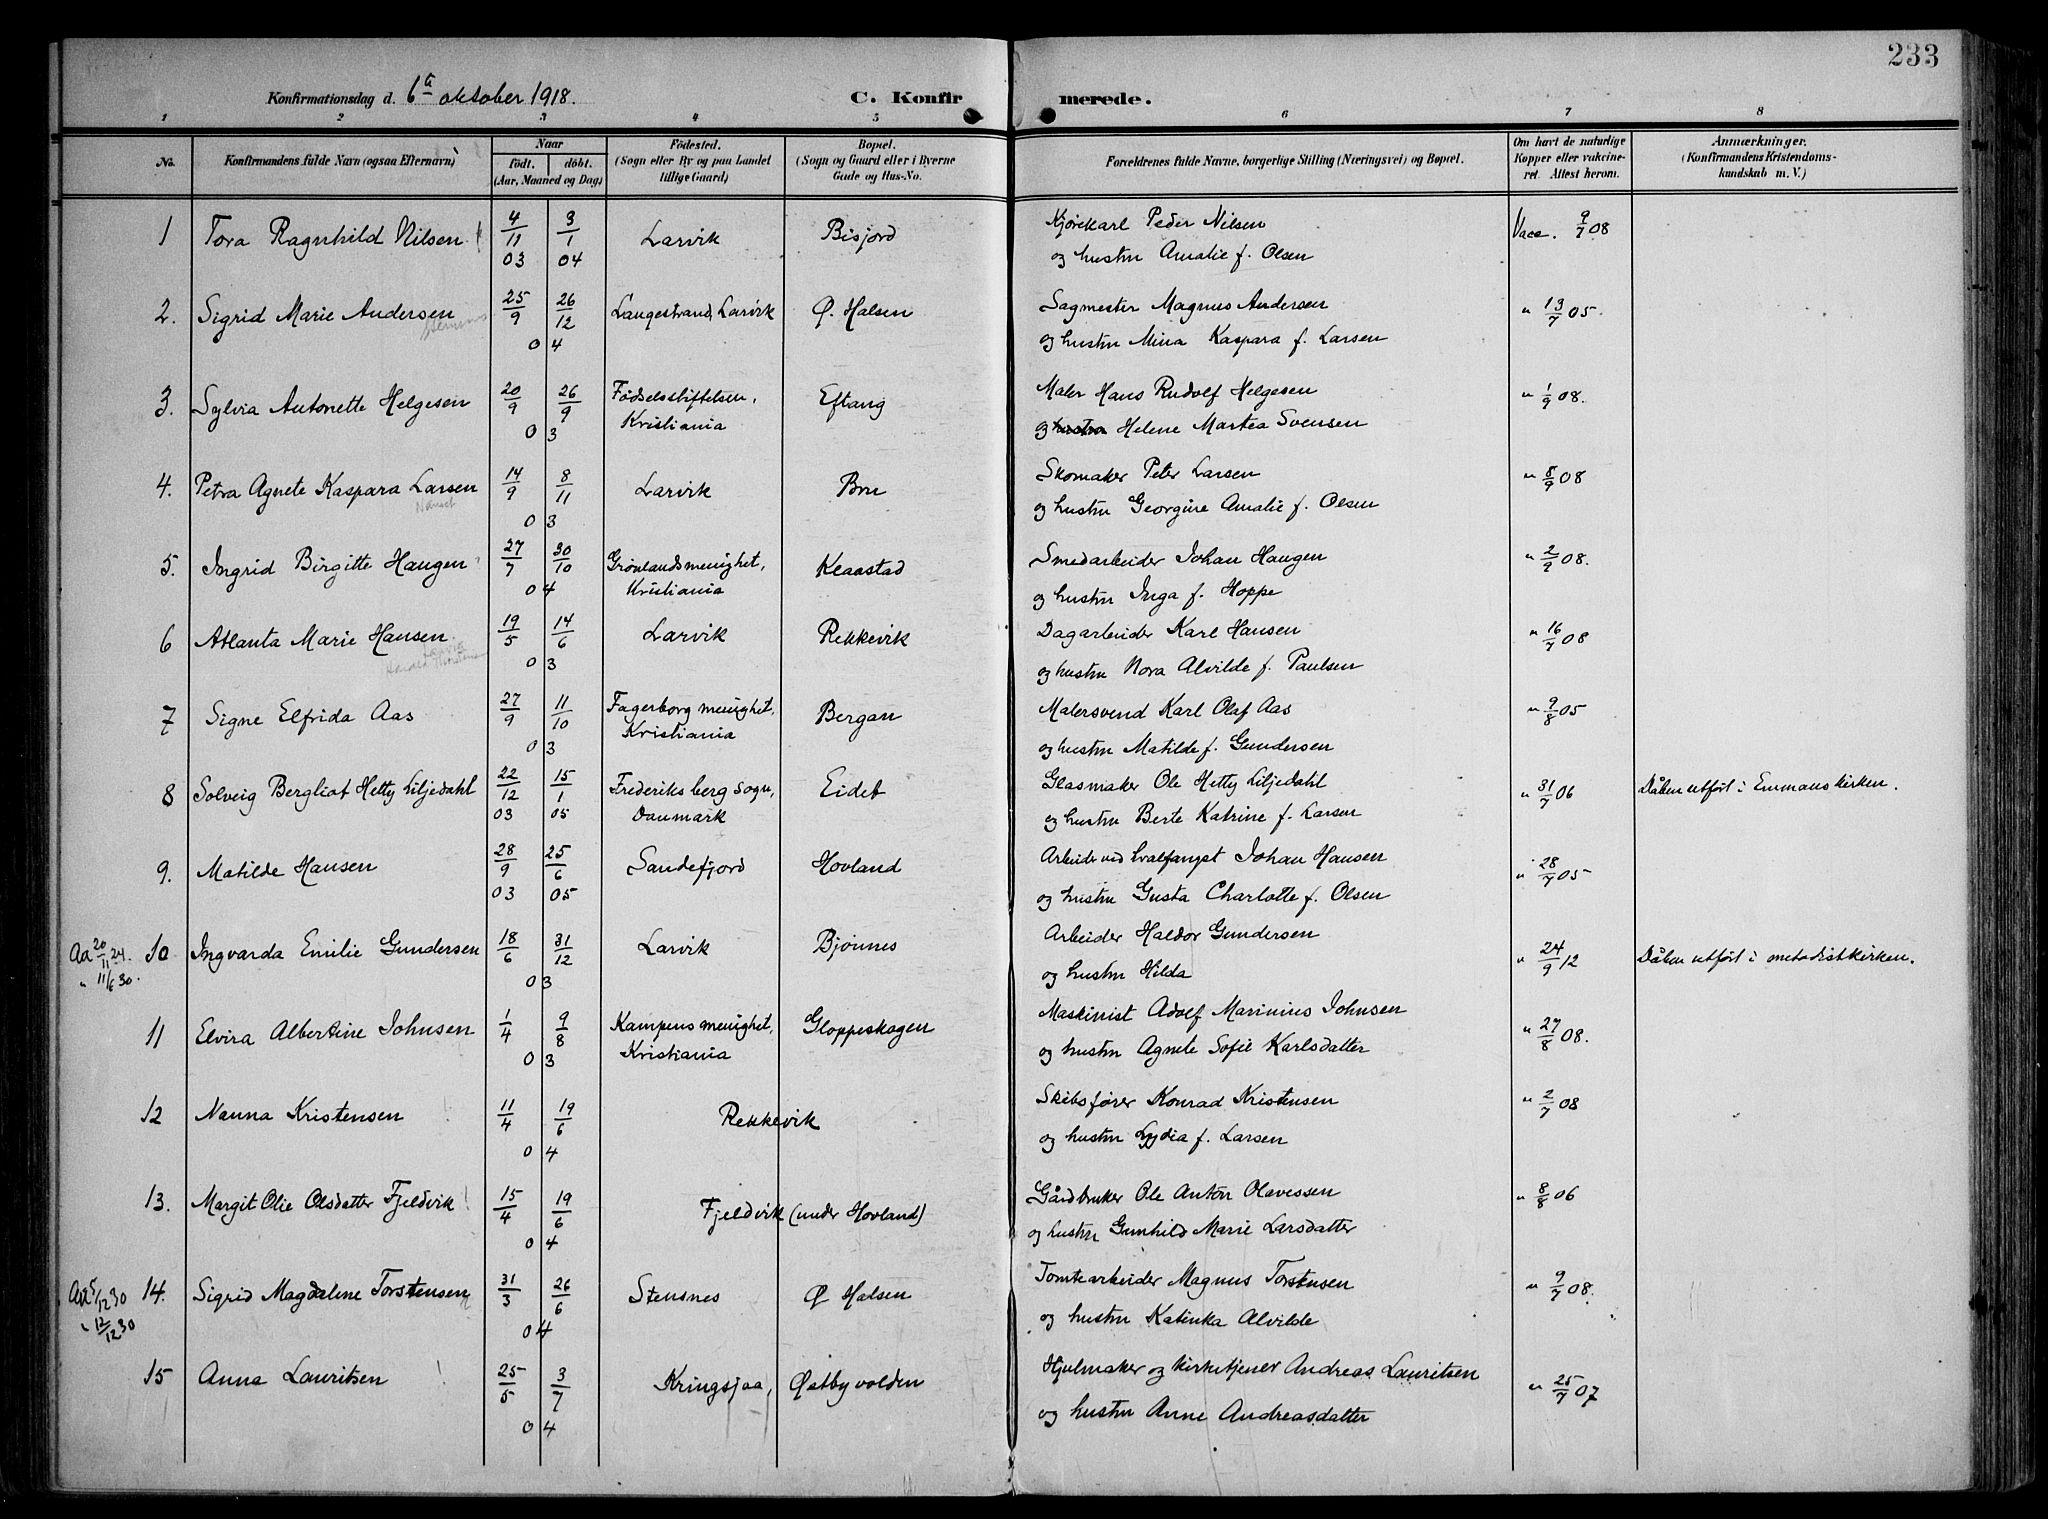 233
Konfirmationsdag d. 6te oktober 1918.
C. Konfirmerede.
1 2 3 4 5 6 7 8
No. Konfirmandens fulde Navn (ogsaa Efternavn) Naar født. døbt. (Aar, Maaned og Dag) Fødested. (Sogn eller By og paa Landet tillige Gaard) Bopæl. (Sogn og Gaard eller i Byerne Gade og Hus-No. Forældrenes fulde Navne, borgerlige Stilling (Næringsvei) og Bopæl. Om havt de naturlige Kopper eller vakcineret. Attest herom. Anmærkninger. (Konfirmandens Kristendomskundskab m. V.)
1 Tora Ragnhild Nilsen 4/11 03 3/1 04 Larvik Bisjord Kjørekarl Peder Nilsen Vacc. 9/7 08
og hustru Amalie f. Olsen
2. Sigrid Marie Andersen 25/9 26/12 04 Langestrand, Larvik Ø. Halsen Sagmester Magnus Andersen " 13/7 05.
og hustru Mina Kaspara f. Larsen
3. Sylvia Antonette Helgesen 20/9 26/9 03 Fødselsstiftelsen, Kristiania Eftang Maler Hans Rudolf Helgesen " 1/9 08.
og hustru Helene Martea Svensen
4. Petra Agnete Kaspara Larsen 14/9 8/11 03 Larvik Bru Skomaker Peter Larsen " 8/9 08
Nanset
og hustru Georgine Amalie f. Olsen
5. Ingrid Birgitte Haugen 27/7 30/10 04 Grønlandsmenighet, Kristiania Klaastad Smedarbeider Johan Haugen " 2/9 08.
og hustru Inga f. Hoppe
6 Atlanta Marie Hansen 19/5 14/6 03 Larvik Rekkevik Dagarbeider Karl Hansen " 16/7 08
og hustru Nora Alvilde f. Paulsen
7 Signe Elfrida Aas 27/9 11/10 03 Fagerborg menighet, Kristiania Bergan Malersvend Karl Olaf Aas " 9/8 05
og hustru Matilde f. Gundersen
8 Solveig Bergliot Hetty Liljedahl 22/12 03 15/1 05 Frederiksberg sogn, Danmark Eidet Glasmaker Ole Hetty Liljedahl " 31/7 06 Dåben utført i Emmanskirken.
og hustru Berte Katrine f. Larsen
9. Matilde Hansen 28/9 03 25/6 05 Sandefjord Hovland Arbeider ved hvalfangst Johan Hansen " 28/7 05
og hustru Gusta Charlotte f. Olsen
Aa 20/11 24. " 11/6 30. 10 Ingvarda Emilie Gundersen 18/6 31/12 03 Larvik Bjønnes Arbeider Haldor Gundersen " 24/9 12 Dåben utført i metodistkirken.
og hustru Hilda
11 Elvira Albertine Johnsen 1/4 9/8 03 Kampens menighet, Kristiania Gloppeskogen Maskinist Adolf Marinius Johnsen " 27/8 08.
og hustru Agnete Sofie Karlsdatter
12 Nanna Kristensen 11/4 19/6 04 Rekkevik Skibsfører Konrad Kristensen " 2/7 08
og hustru Lydia f. Larsen
13. Margit Olie Olsdatter Fjeldvik 15/4 19/6 04 Fjeldvik (under Hovland) Gårdbruker Ole Anton Olavessen " 8/8 06
og hustru Gunhild Marie Larsdatter
Aa 5/12 30 " 12/12 30 14. Sigrid Magdalene Torstensen 31/3 26/6 04 Stensnes Ø Halsen Tomtearbeider Magnus Torstensen " 9/7 08.
og hustru Katinka Alvilde
15 Anna Lauritsen 25/5 3/7 04 Kringsjaa, Østbyvolden Hjulmaker og kirketjener Andreas Lauritsen " 25/7 07
og hustru Anne Andreasdatter